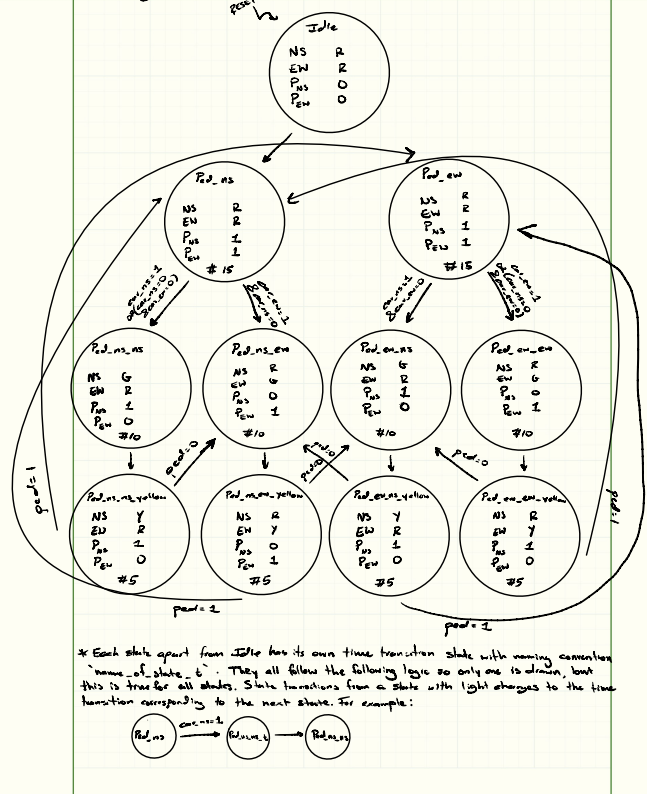 RESET
Idle
NS R
EW R
PNS 0
PEW 0
Ped_ns
NS R
EW R
PNS 1
PEW 1
#15
Ped_ew
NS R
EW R
PNS 1
PEW 1
#15
car_ns=1
or(car_ns=0
&car_ew=0)
car_ew=1
&car_ns=0
car_ns=1
&car_ew=0
car_ew=1
or(car_ns=0
&car_ew=0)
Ped_ns_ns
NS G
EW R
PNS 1
PEW 0
#10
Ped_ns_ew
NS R
EW G
PNS 0
PEW 1
#10
Ped_ew_ns
NS G
EW R
PNS 1
PEW 0
#10
Ped_ew_ew
NS R
EW G
PNS 0
PEW 1
ped=0
ped=0
ped=0
ped=0
Ped_ns_ns_yellow
NS Y
EW R
PNS 1
PEW 0
#5
Ped_ns_ew_yellow
NS R
EW Y
PNS 0
PEW 1
#5
Ped_ew_ns_yellow
NS Y
EW R
PNS 1
PEW 0
#5
Ped_ew_ew_yellow
NS R
EW Y
PNS 1
PEW 0
#5
ped=1
ped=1
ped=1
ped=1
* Each state apart from Idle has its own time transition state with naming convention
`name_of_state_t`. They all follow the following logic so only one is drawn, but
this is true for all states. State transitions from a state with light changes to the time
transition corresponding to the next state. For example:
Ped_ns
car_ns=1
Ped_ns_ns_t
Ped_ns_ns